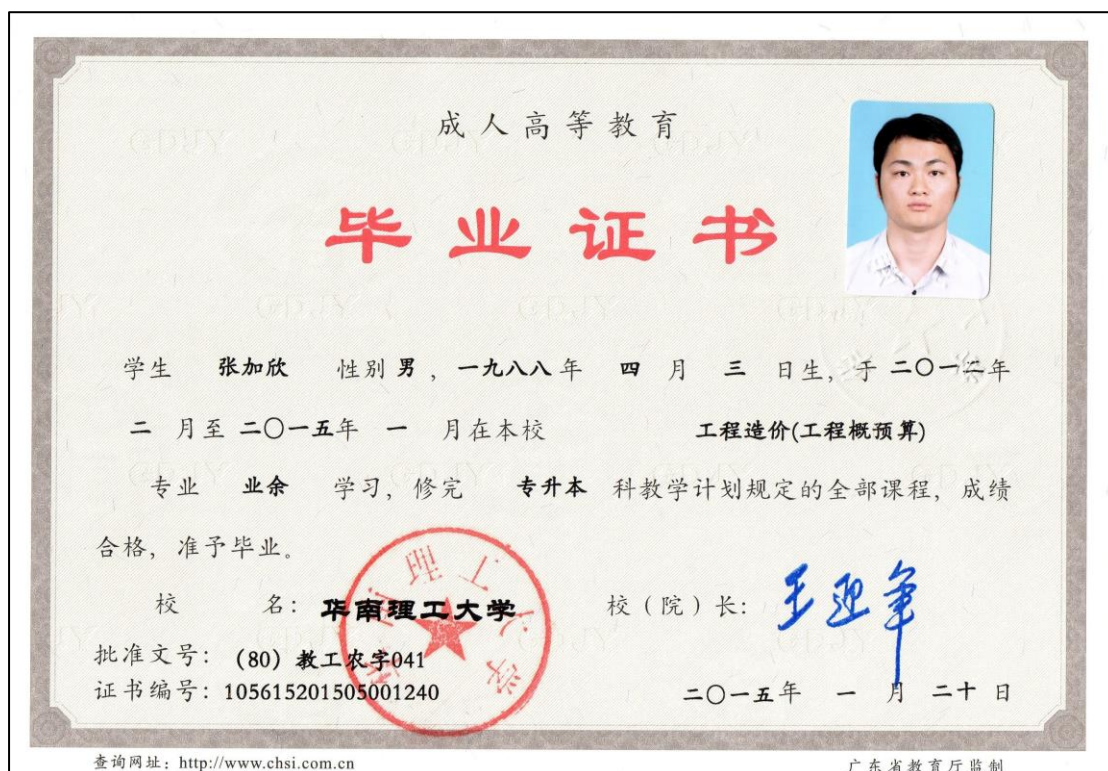 成人高等教育
毕业证书
学生 张加欣 性别 男，一九八八年 四 月 三 日生，于 二〇一二年
二 月至 二〇一五年 一 月在本校 工程造价(工程概预算)
专业 业余 学习，修完 专升本 科教学计划规定的全部课程，成绩
合格，准予毕业。
校 名：华南理工大学 校（院）长：王迎军
华南理工大学
批准文号：（80）教工农字041
证书编号：105615201505001240 二〇一五年 一 月 二十 日
查询网址：http://www.chsi.com.cn 广东省教育厅监制
GDJY